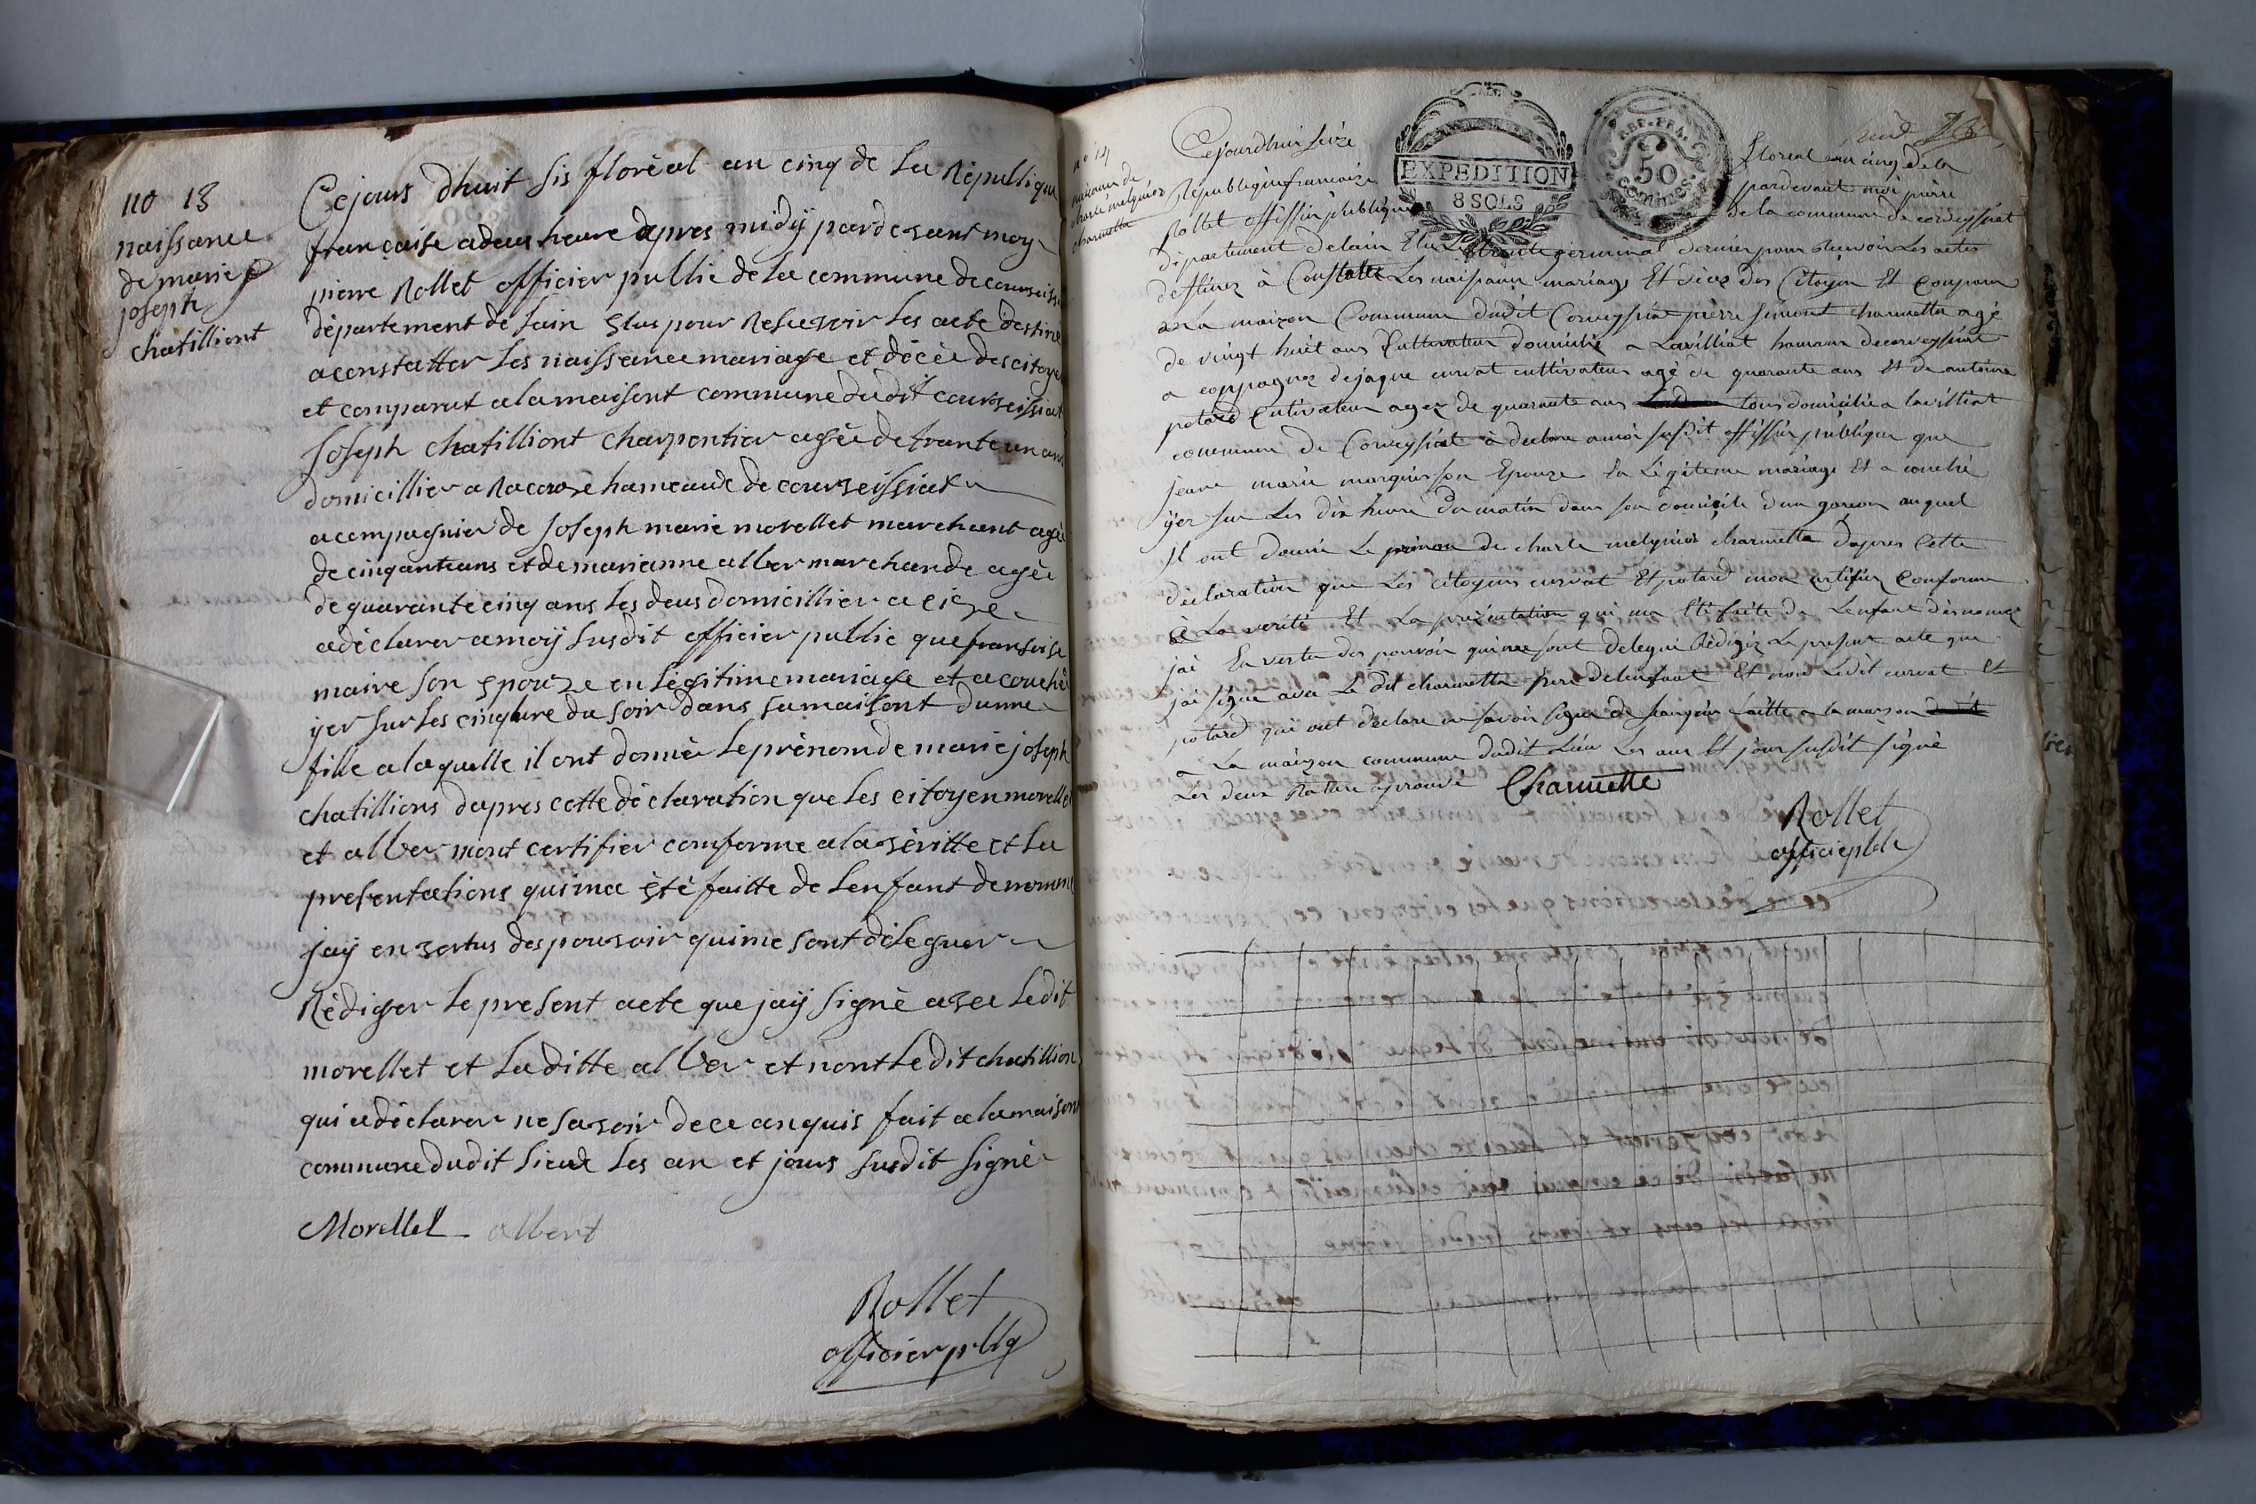 no 13
naissance
de marie
joseph
chatilliont
Cejours dhuit sis floréal an cinq de la Républigue
française a deus heure apres midÿ pardevant moy
pierre Rollet officier pullic de la commune de courveissi
département de lain Elus pour Resevoir les acte destine
a constatter les naissance mariage et décée des citoye
et comparut a la maisont commune dudit courveissiat
Joseph chatilliont charpentier agée de trante un ans
domicillier a Racouze hameaude de courveissiat
acompagnier de Joseph marie morellet marchant agée
de cinqanteans et de marianne alber marchande agée
de quarantecinq ans les deus domicillier a cize
a déclarer a moÿ susdit officier pullic que franseise
maire son Epouze en légitime mariage et a couchée
yer sur les cinqhure du soir dans sa maisont dunne
fille a laquelle il ont donnée le prénom de marie joseph
chatillions dapres cette déclaration que les citoyen morelle
et alber mont certifier comforme a la véritte et la
presentations qui ma été faitte de lenfant denomm
jaÿ en vertus des pouvoir qui me sont déleguer
Rédiger le present acte que jaÿ signé avec ledit
morellet et laditte alber et nont ledit chatillion
qui a déclarer ne savoir de ce anquis fait a la maisont
commune dudit lieux les an et jours susdit signé
Morellet albert
Rollet
officier pllq
no 14
naissance de
charle melquior
charmetta
EXPEDITION
8 SOLS
REP. FRA.
50
Centimes.
Cejourdhui seize
floreal an cinq de la
Republique francaize
pardevant moi pierre
Rollet offissier publique
de la commune de corveyssiat
departement delain Elu Le trente germinal dernier pour resevoir Les actes
destinez à Constatte Les naissance mariage Et décez des Citoyen Et Comparu
a la maizon Commune dudit Corveyssiat pierre simont charmetta agé
de vingt huit ans Cultivateur domicilié a Lavilliat hamaux decorveyssiat
a coppagnez dejaque curvat cultivateur agé de quarante ans Et de antoine
potard Cultivateur agez de quarante ans tous domicilié a lavilliat
commune de Corveyssiat a declare a moi susdit offissier publique que
jeane marie marquis son Epouze En Légiteme mariage Et a couché
yer sur Les dix heure du matin dans son domicile dun garson auquel
Il ont donné Le prénom de charle melquior charmetta dapres Cette
déclaration que Les citoyens curvat Et potard mon certifiez Conforme
à La verité Et La prezentation qui ma Eté faite de Lenfant dénomez
jai En vertu des pouvoir qui me sont delegué Rédigez Le present acte que
jai signe avec Le dit charmetta pere de lenfant Et non Ledit curvat Et
potard qui ont declare ne savoir signe de faitte a la maizon
a La maizon commune dudit Lieu Les ans Et jour susdit signé
Les deux Rature aprouvé Charmette
Rollet
officier